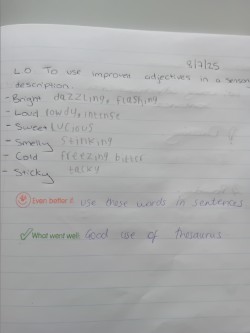 8/7/25
LO To use improved adjectives in a sensory
description.
- Bright dazzling, flashing
- Loud rowdy, intense
- Sweet Lucious
- Smelly stinking
- Cold freezing bitter
- Sticky tacky
Even better if: use these words in sentences
What went well: Good use of thesaurus